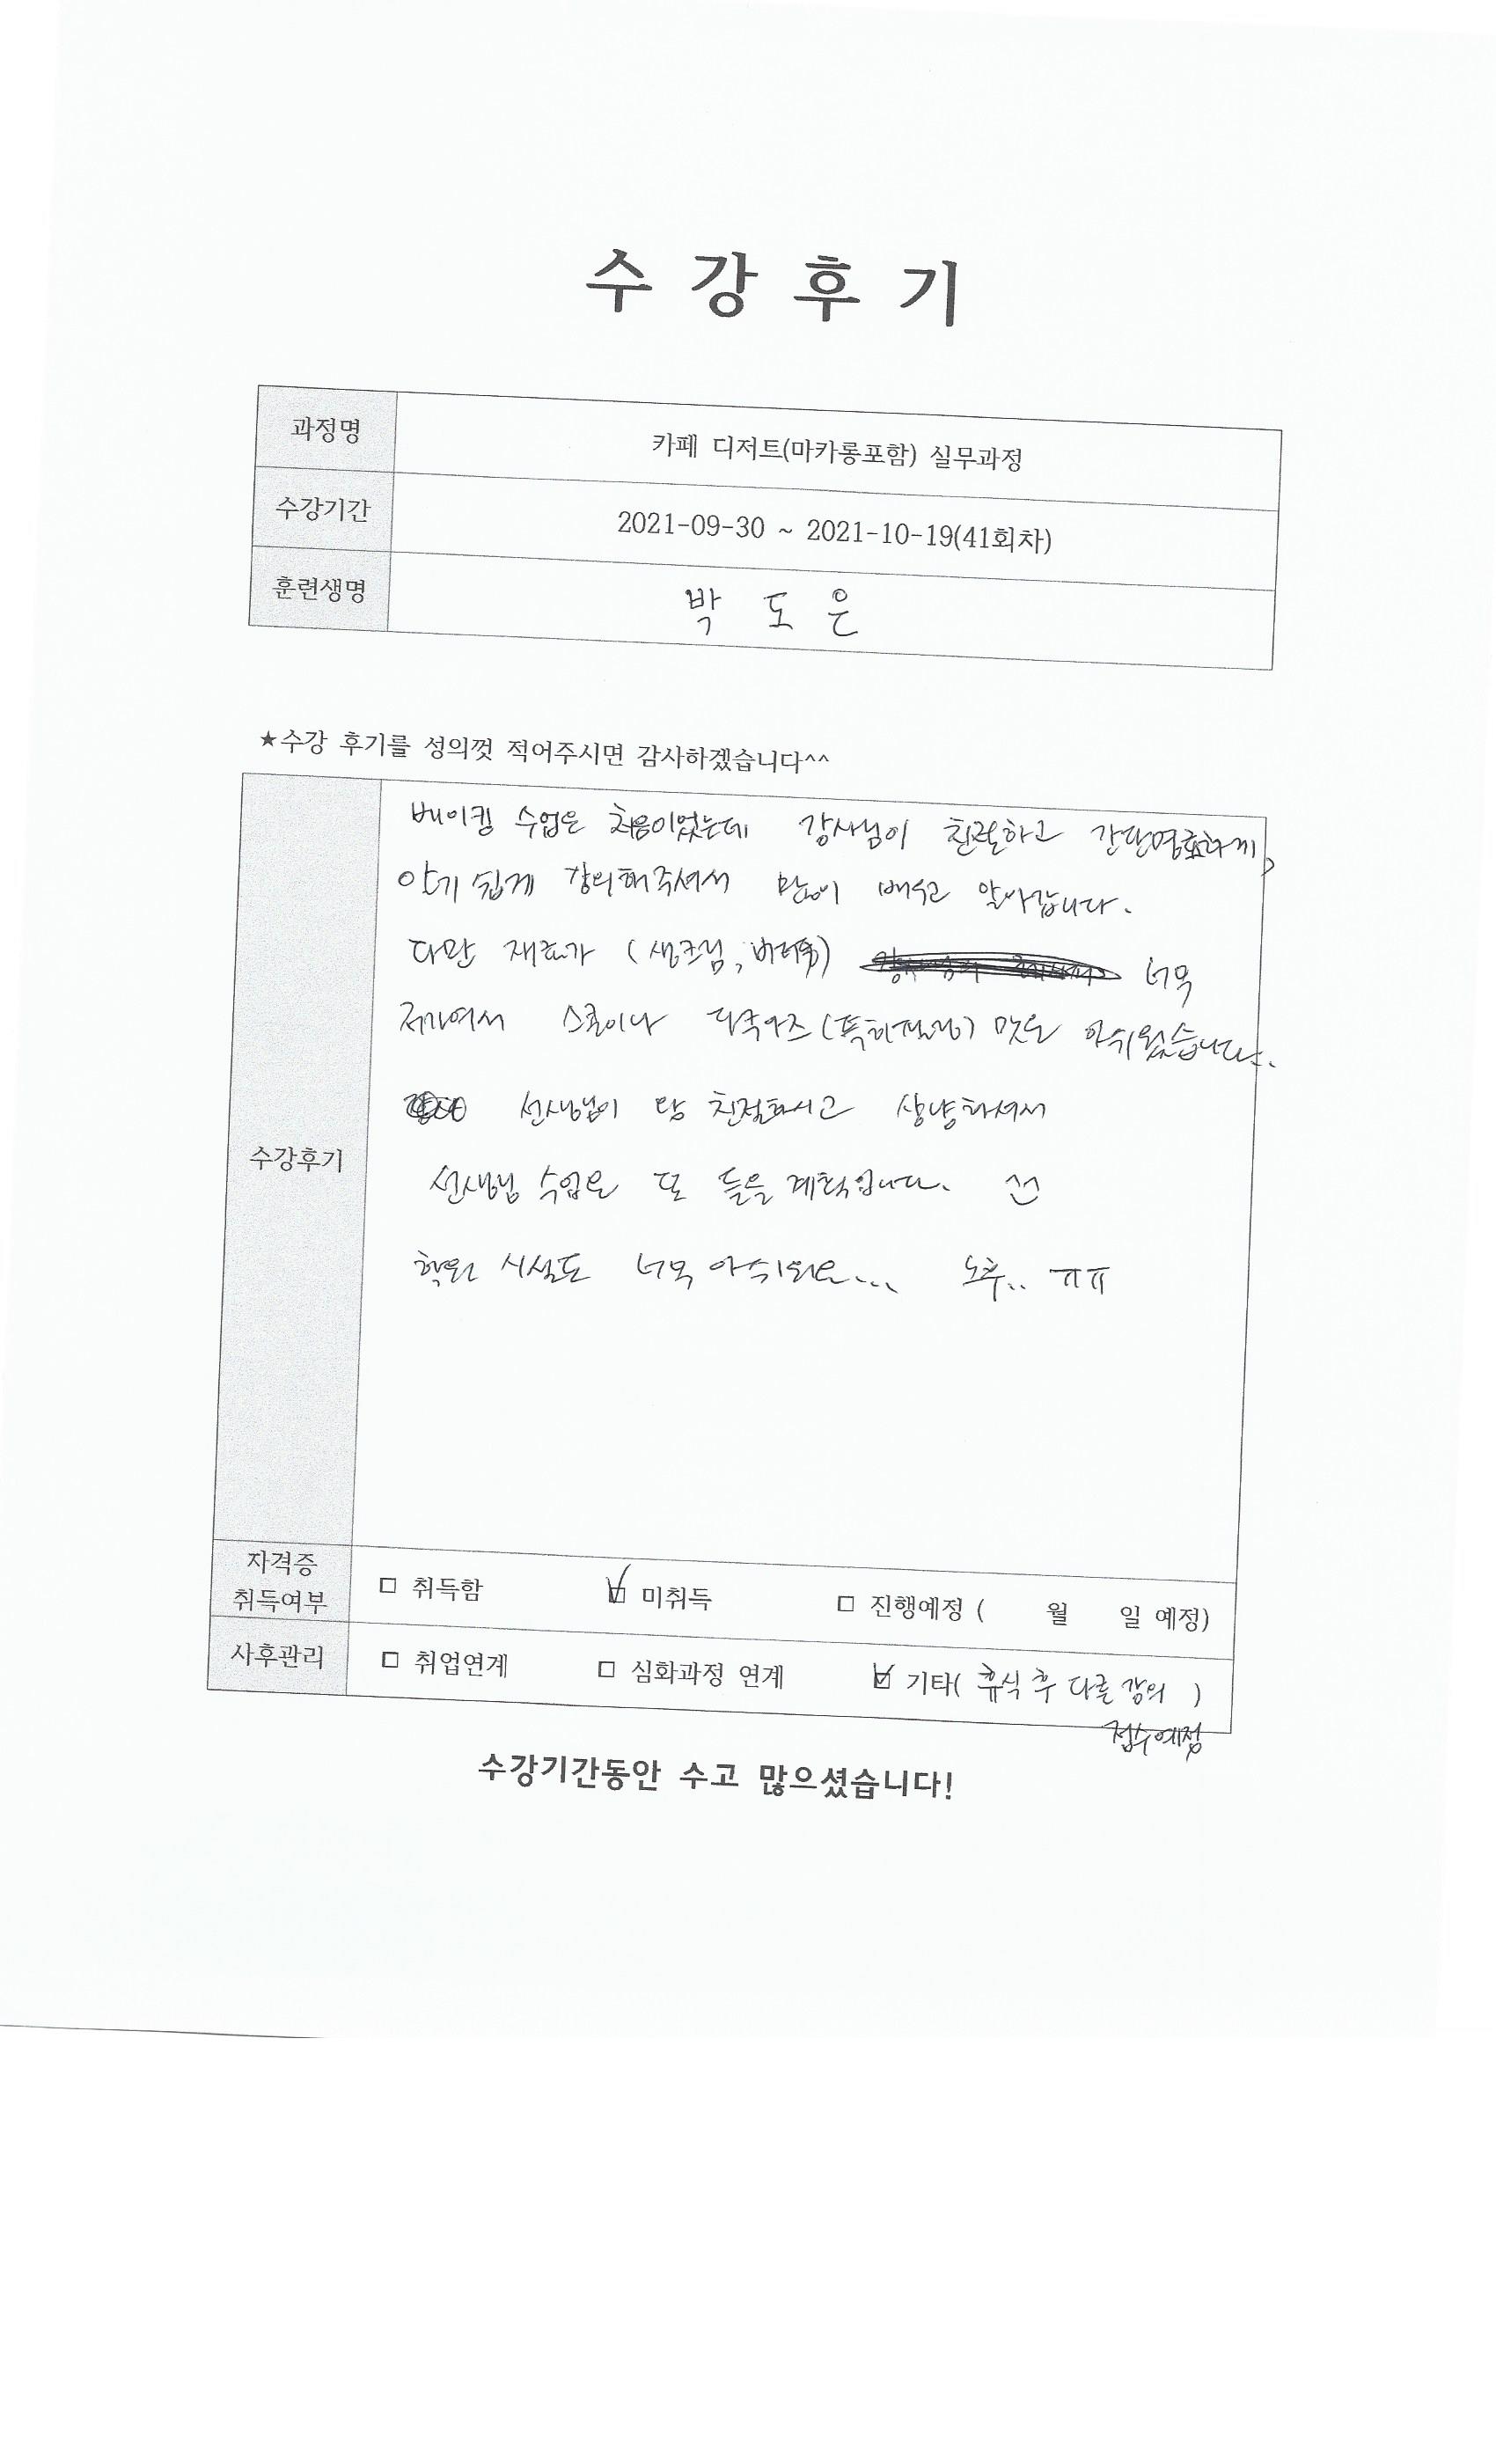 수 강 후 기
과정명 카페 디저트(마카롱포함) 실무과정
수강기간 2021-09-30 ~ 2021-10-19(41회차)
훈련생명 박 도 은
★수강 후기를 성의껏 적어주시면 감사하겠습니다^^
수강후기
베이킹 수업은 처음이었는데 강사님이 친절하고 간단명료하게,
알기 쉽게 강의해주셔서 많이 배우고 알아갑니다.
다만 재료가 (생크림, 버터 등) 너무
저가여서 스콘이나 다쿠아즈 (특히 필링) 맛은 아쉬웠습니다..
선생님이 참 친절하시고 상냥하셔서
선생님 수업은 또 들을 계획입니다.
학원 시설도 너무 아쉬워요... 노후.. ㅠㅠ
자격증
취득여부 □ 취득함 ☑ 미취득 □ 진행예정 ( 월 일 예정)
사후관리 □ 취업연계 □ 심화과정 연계 ☑ 기타( 휴식 후 다른 강의 )
접수예정
수강기간동안 수고 많으셨습니다!